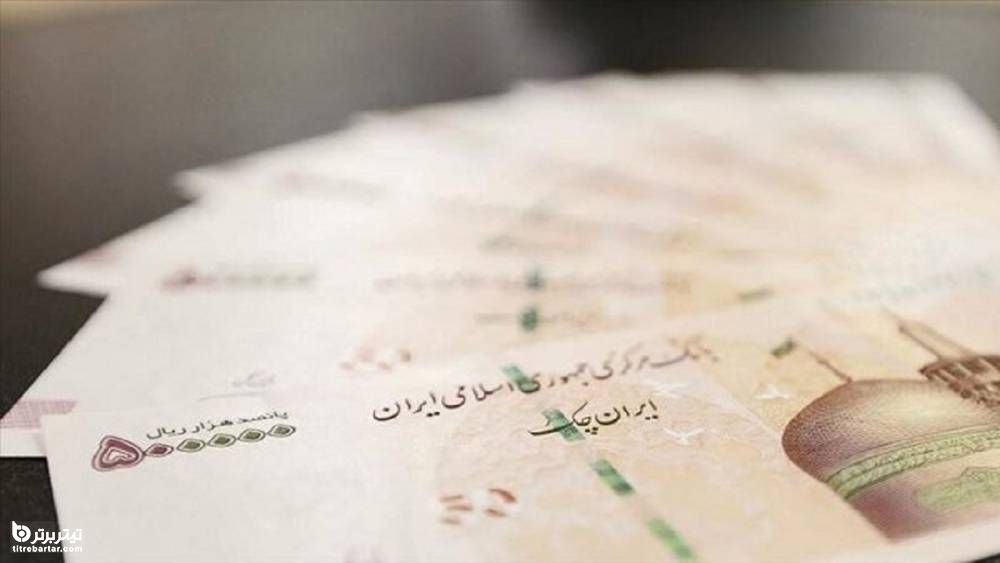 بانک مرکزی جمهوری اسلامی ایران
ایران چک
پانصد هزار ریال
۵۰۰۰۰۰
تیتربرتر
titrebartar.com